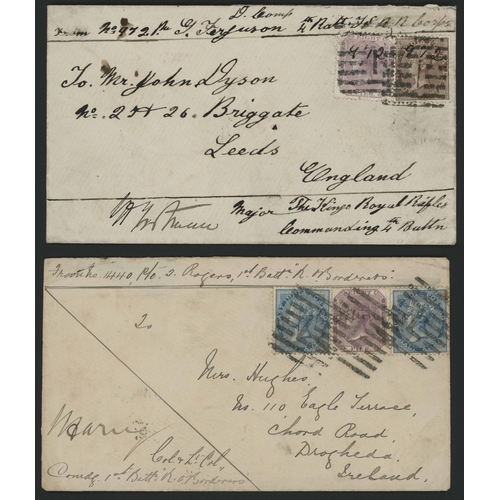 D. Comp
From No 972 Pte G. Ferguson 4th Batt
To. Mr. John Dyson
No. 25 & 26. Briggate
Leeds
England
Major The Kings Royal Rifles
Commanding 4th Battn
From No. 1440, Pte. J. Rogers, 1st Batt. K. O. Borderers.
To
Mrs. Hughes,
No. 110 Eagle Terrace,
Chord Road,
Drogheda,
Ireland.
Col & Lt. Col,
Comdg. 1st Batt. K. O. Borderers